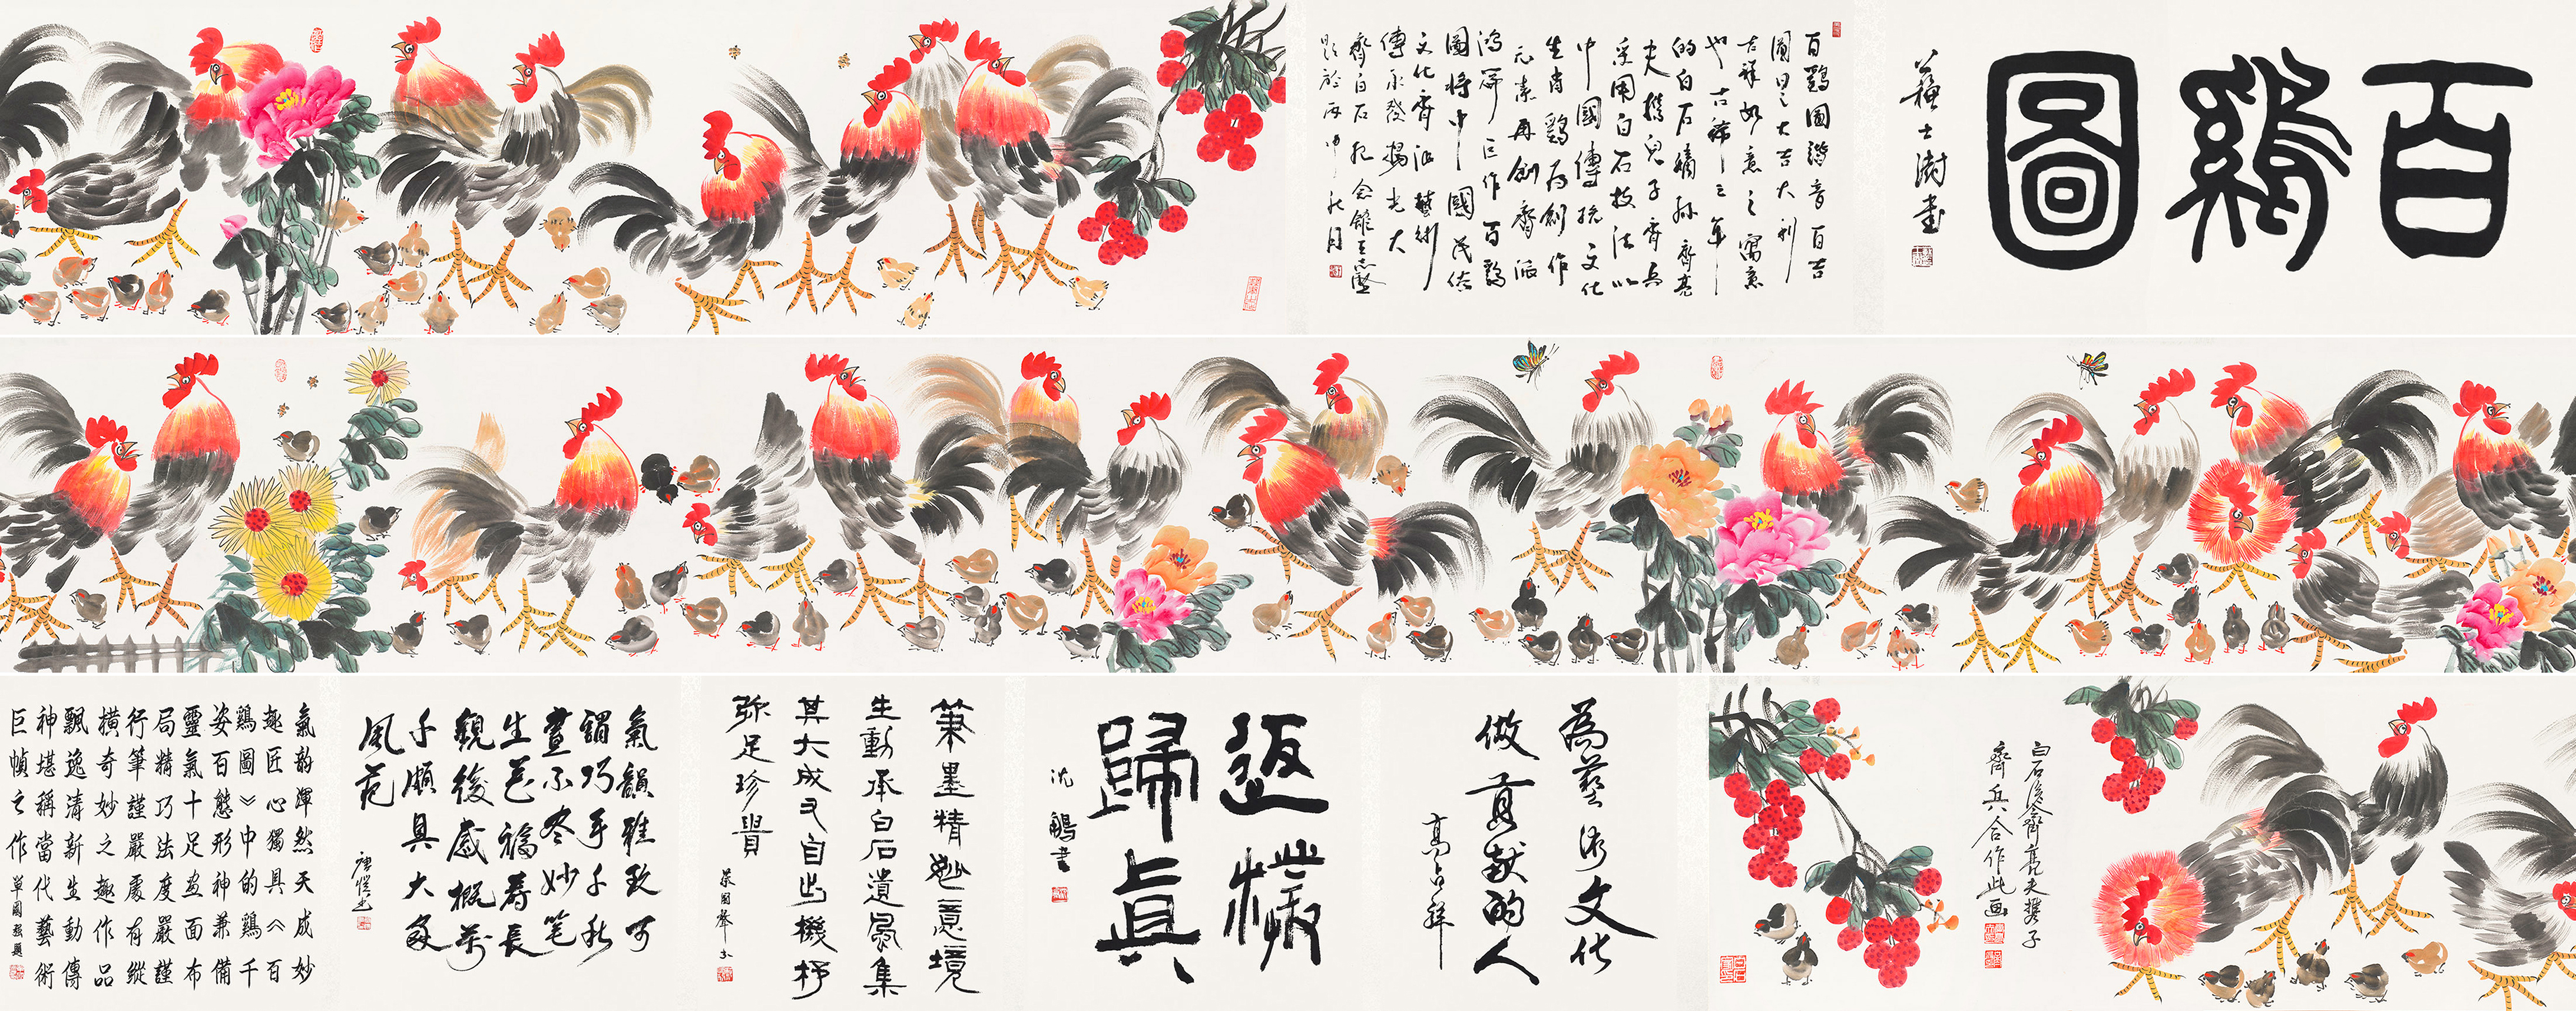 百鷄圖
蘇士澍書
百鷄圖諧音百吉
圖曰之大吉大利
吉祥如意之寓意
也古稀之年
的白石嫡孫齊亮
夫携兒子齊兵
采用白石技法以
中國傳統文化
生肖鷄為創作
元素再創齊派
鴻篇巨作百鷄
圖將中國民俗
文化齊派藝術
傳承發揚光大
齊白石紀念館王志堅
題於丙申秋月
白石後裔齊亮夫携子
齊兵合作此画
為藝術文化
做貢献的人
高占祥
返樸
歸真
沈鵬書
筆墨精妙意境
生動承白石遺風集
其大成又自出機杼
弥足珍貴
氣韻雅致可
謂巧手千秋
畫不冬妙笔
生花福壽長
觀後感概萬
千頗具大家
風范
唐愷書
氣韵渾然天成妙
趣匠心獨具《百
鷄圖》中的鷄千
姿百態形神兼備
靈氣十足畫面布
局精巧法度嚴謹
行筆謹嚴處有縱
橫奇妙之趣作品
飄逸清新生動傳
神堪稱當代藝術
巨幀之作
單國強題